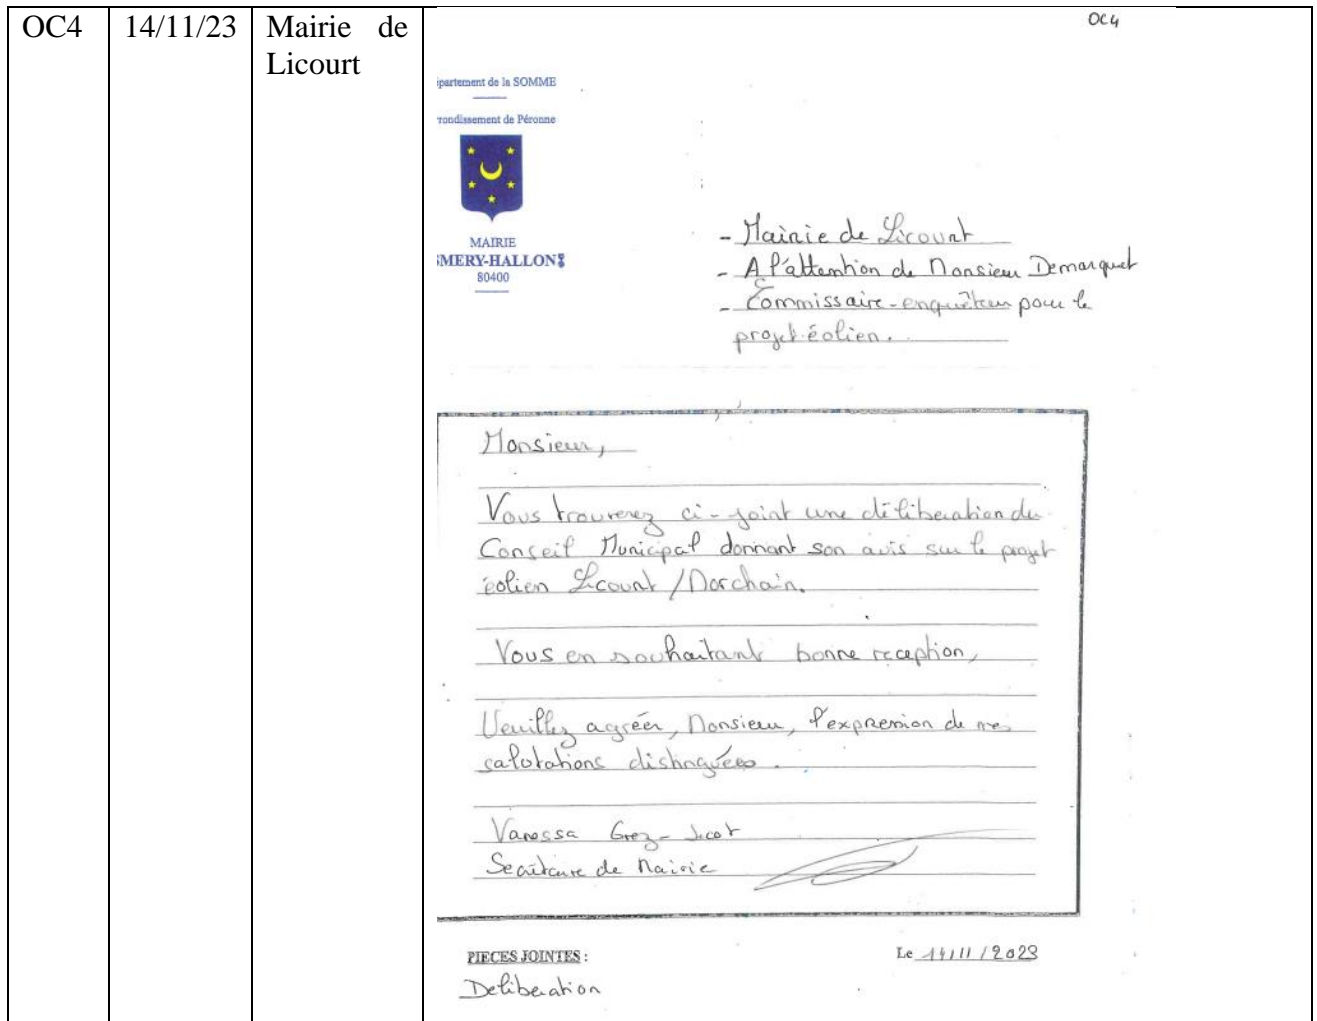 OC4
14/11/23
Mairie de
Licourt
OC4
épartement de la SOMME
rrondissement de Péronne
MAIRIE
SMERY-HALLON
80400
- Mairie de Licourt
- A l'attention de Monsieur Demarquet
- Commissaire-enquêteur pour le
projet éolien.
Monsieur,
Vous trouverez ci-joint une déliberation du
Conseil Municipal donnant son avis sur le projet
éolien Licourt / Morchain.
Vous en souhaitant bonne reception,
Veuillez agréer, Monsieur, l'expression de mes
salutations distinguées.
Vanessa Grez-
Secrétaire de Mairie
PIECES JOINTES :
Le 14/11/2023
Deliberation